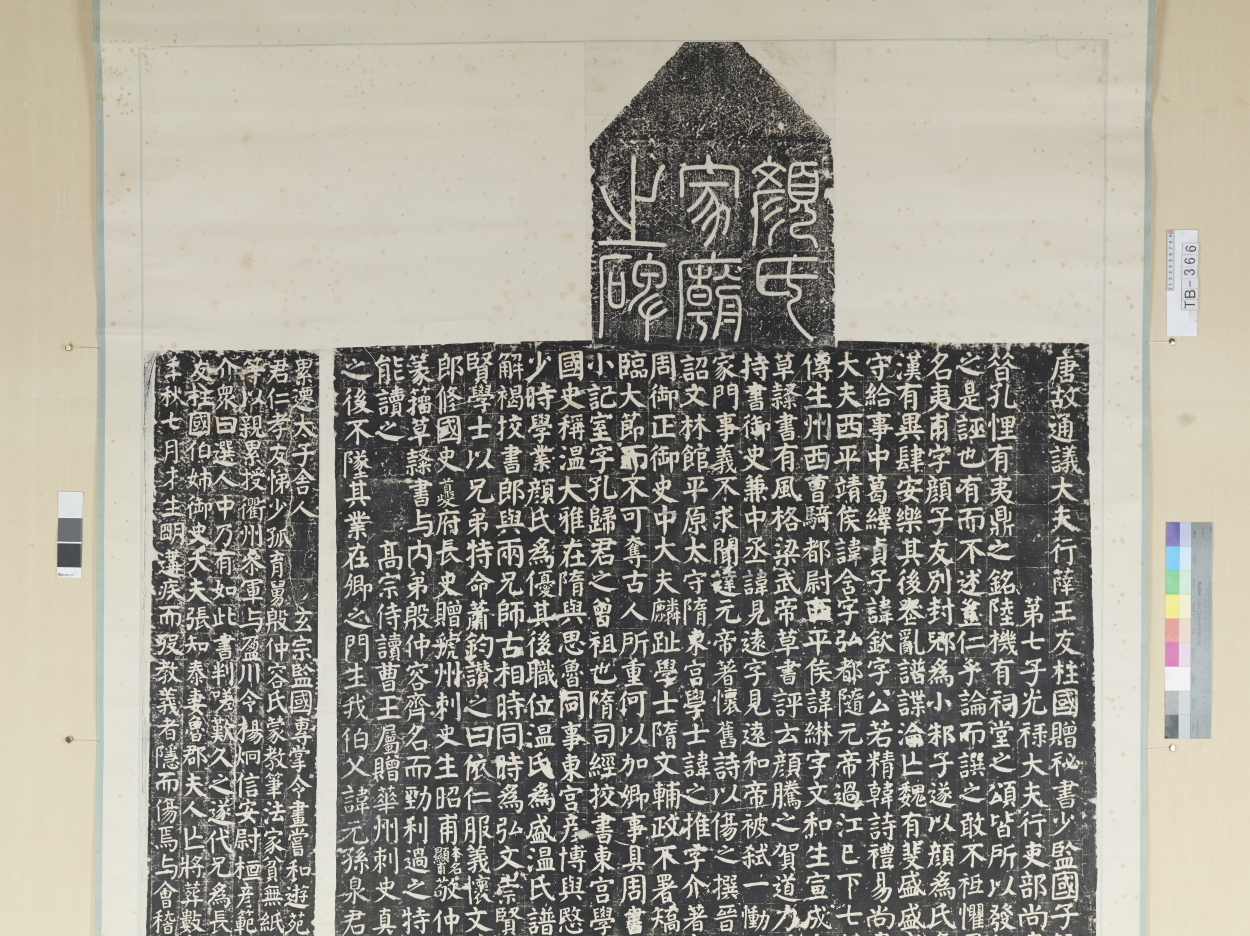 顏氏
家廟
之碑
唐故通議大夫行薛王友柱國贈秘書少監國子
第七子光祿大夫行吏部尚
昔孔悝有夷鼎之銘陸機有祠堂之頌皆所以發
之是誣也有而不述豈仁乎論而譔之敢不祗懼
名夷甫字顏子友別封郳為小邾子遂以顏為氏
漢有異肆安樂其後喪亂譜諜淪亡魏有斐盛盛
守給事中葛繹貞子諱欽字公若精韓詩禮易尚
大夫西平靖侯諱含字弘都隨元帝過江已下七
傳生州西曹騎都尉西平侯諱綝字文和生宣成
草隸書有風格梁武帝草書評云顏騰之賀道力
持書御史兼中丞諱見遠字見遠和帝被弒一慟
家門事義不求聞達元帝著懷舊詩以傷之撰晉
詔文林館平原太守隋東宮學士諱之推字介著
周御正御史中大夫麟趾學士隋文輔政不署矯
臨大節而不可奪古人所重何以加卿事具周書
小記室字孔歸君之曾祖也隋司經挍書東宮學
國史稱溫大雅在隋與思魯同事東宮彥博與愍
少時學業顏氏為優其後職位溫氏為盛溫氏譜
解褐挍書郎與兩兄師古相時同時為弘文崇賢
賢學士以兄弟特命蕭鈞讚之曰依仁服義懷文
郎修國史夔府長史贈虢州刺史生昭甫本名顯甫敬仲
篆籀草隸書与內弟殷仲容齊名而勁利過之特
能讀之 高宗侍讀曹王屬贈華州刺史真
之後不隊其業在卿之門生我伯父諱元孫泉君
累遷太子舍人 玄宗監國專掌令畫嘗和遊苑
君仁孝友悌少孤育舅殷仲容氏蒙教筆法家貧無紙
等以親累授衢州參軍与盈川令楊炯信安尉桓彥範
介眾曰選人中乃有如此書判嗟歎久之遂代兄為長
友柱國伯姊御史大夫張知泰妻魯郡夫人亡將葬數
年秋七月才生明遘疾而歿教義者隱而傷焉与會稽
TB-366